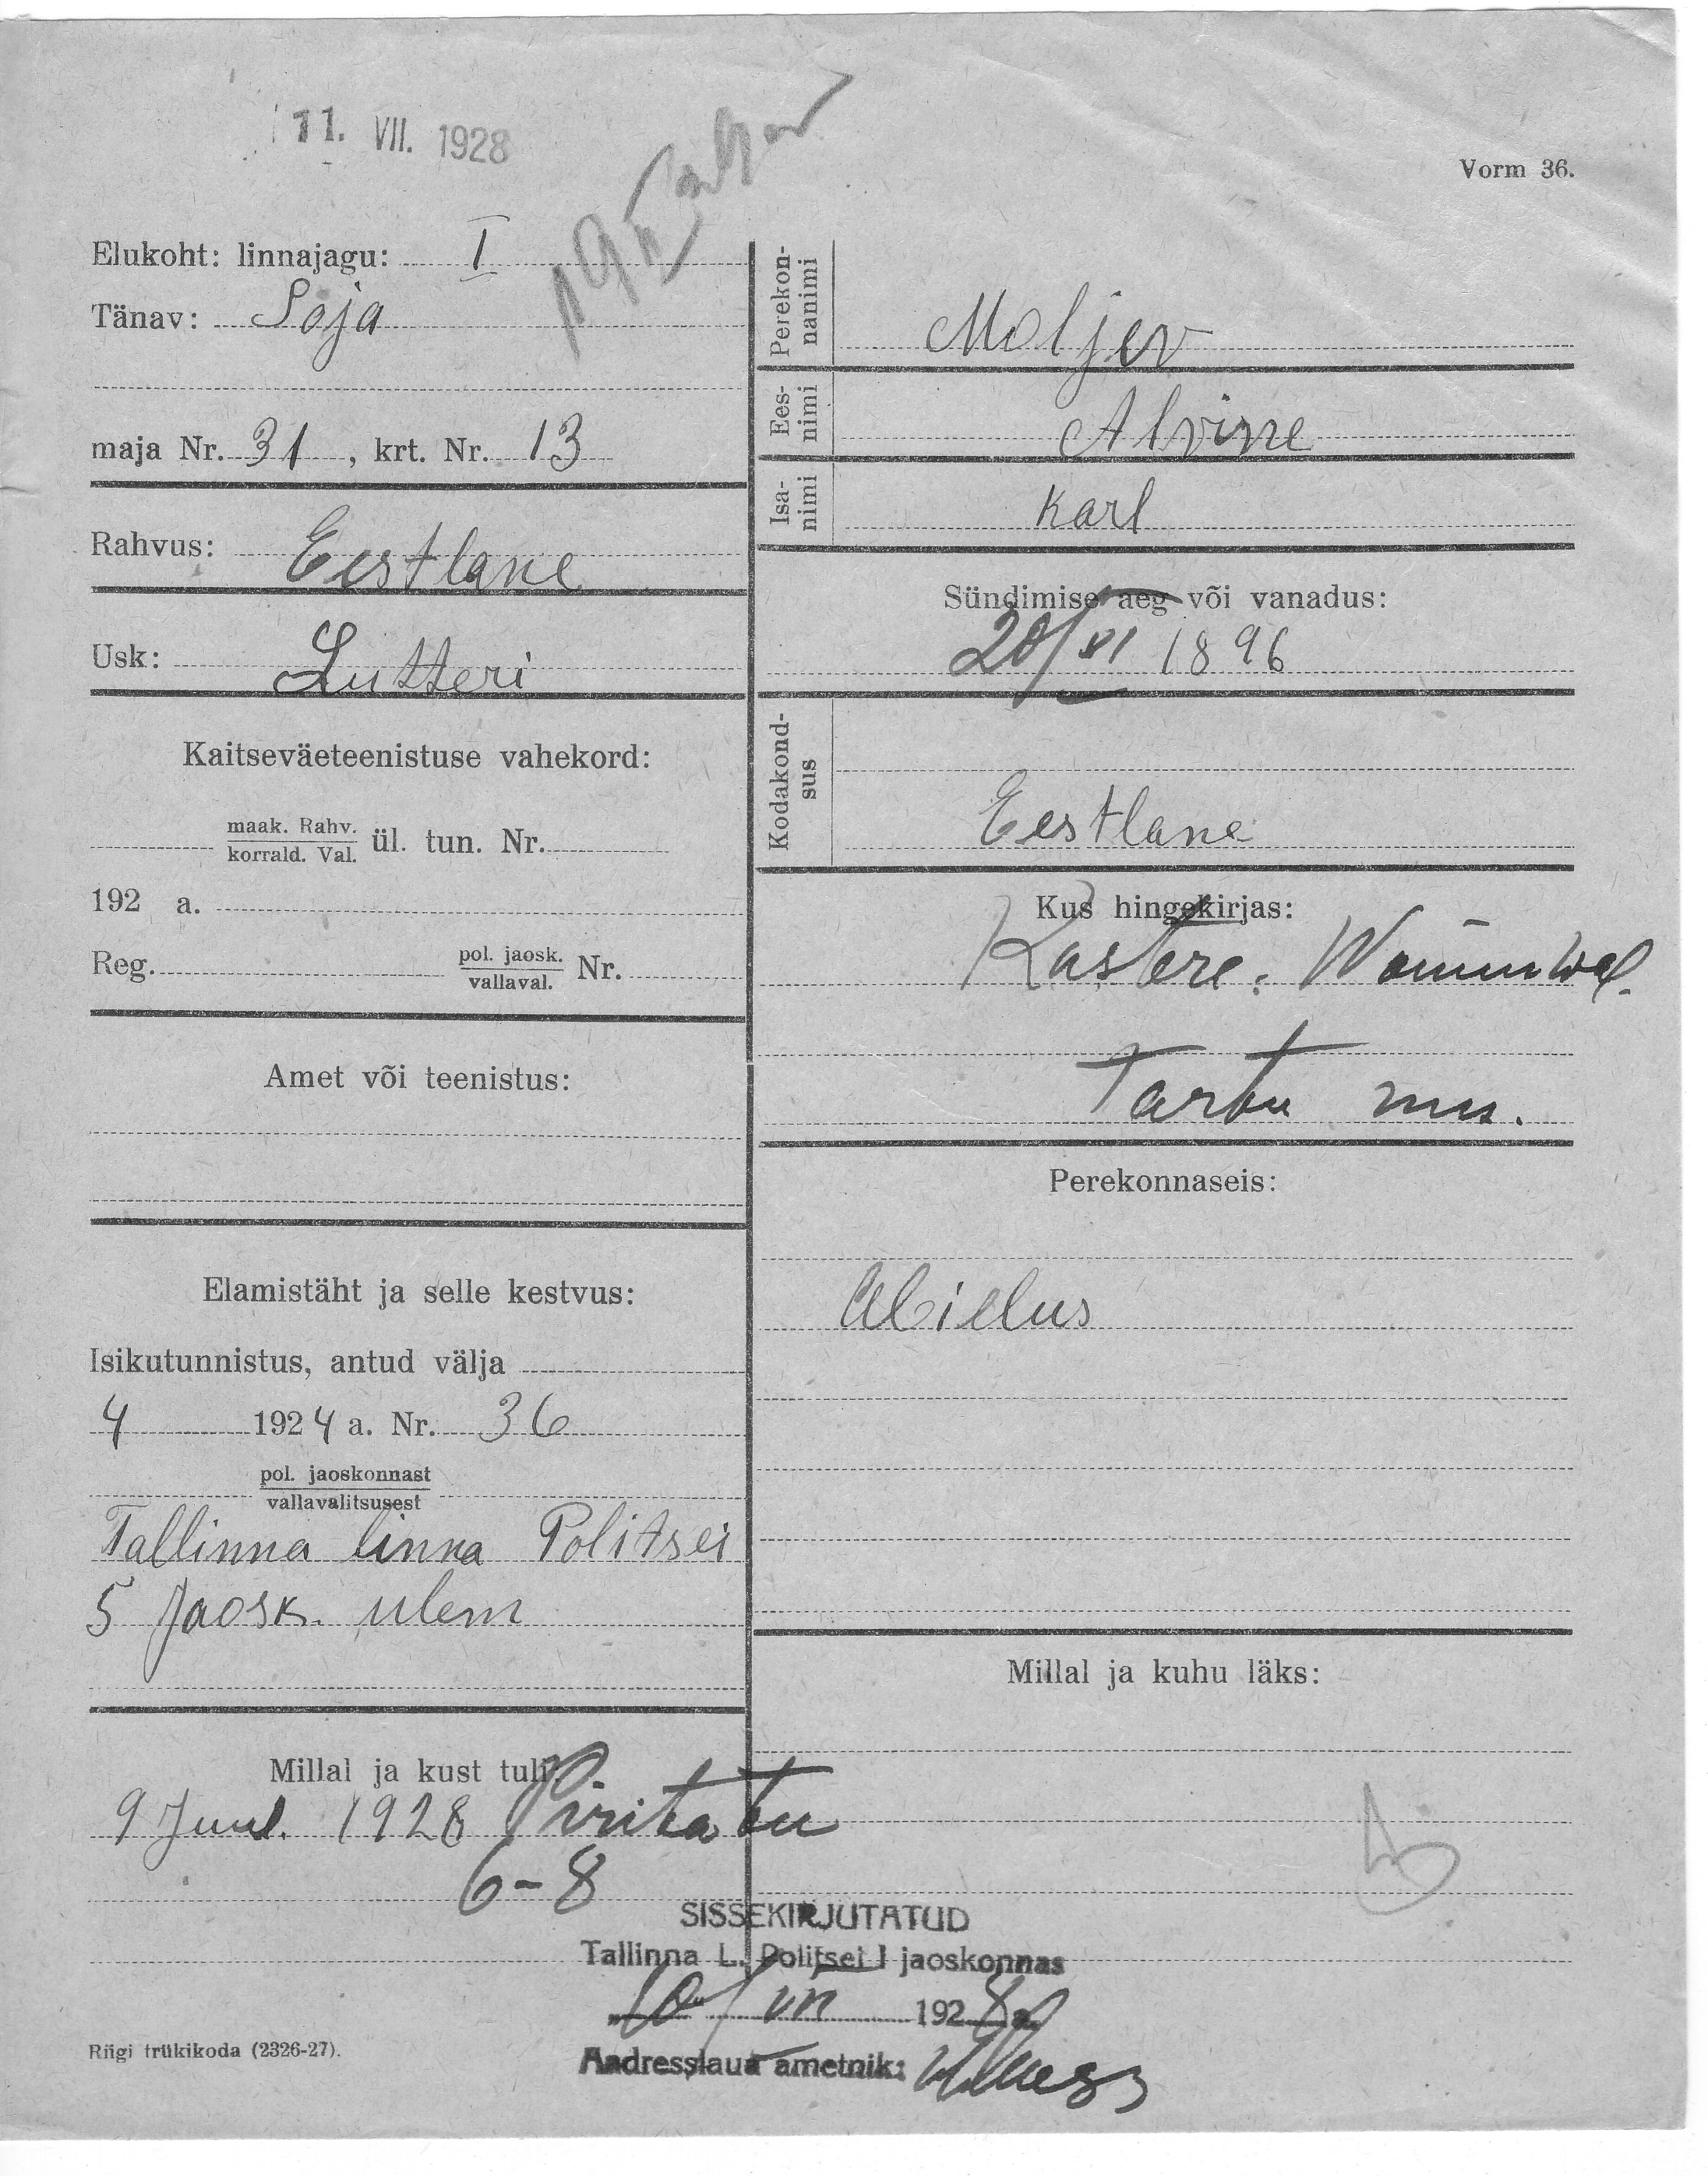 11. VII. 1928
Vorm 36.
Elukoht: linnajagu: I
Tänav: Soja
maja Nr. 31, krt. Nr. 13
Rahvus: Eestlane
Usk: Lutteri
Kaitseväeteenistuse vahekord:
maak. Rahv.
korrald. Val. ül. tun. Nr.
192 a.
Reg. pol. jaosk.
vallaval. Nr.
Amet või teenistus:
Elamistäht ja selle kestvus:
Isikutunnistus, antud välja
4 1924 a. Nr. 36
pol. jaoskonnast
vallavalitsusest
Tallinna linna Politsei
5 Jaosk. ulem
Millal ja kust tuli:
9 Juul. 1928 Pirita tee
6-8
Perekon-
nanimi Moljev
Ees-
nimi Alvine
Isa-
nimi Karl
Sündimise aeg või vanadus:
20/XI 1896
Kodakond-
sus
Eestlane
Kus hingekirjas:
Kastere-
Tartu
Perekonnaseis:
Abielus
Millal ja kuhu läks:
SISSEKIRJUTATUD
Tallinna L. Politsei I jaoskonnas
„10" / VII 1928 a.
Aadresslaua ametnik:
Riigi trükikoda (2326-27).